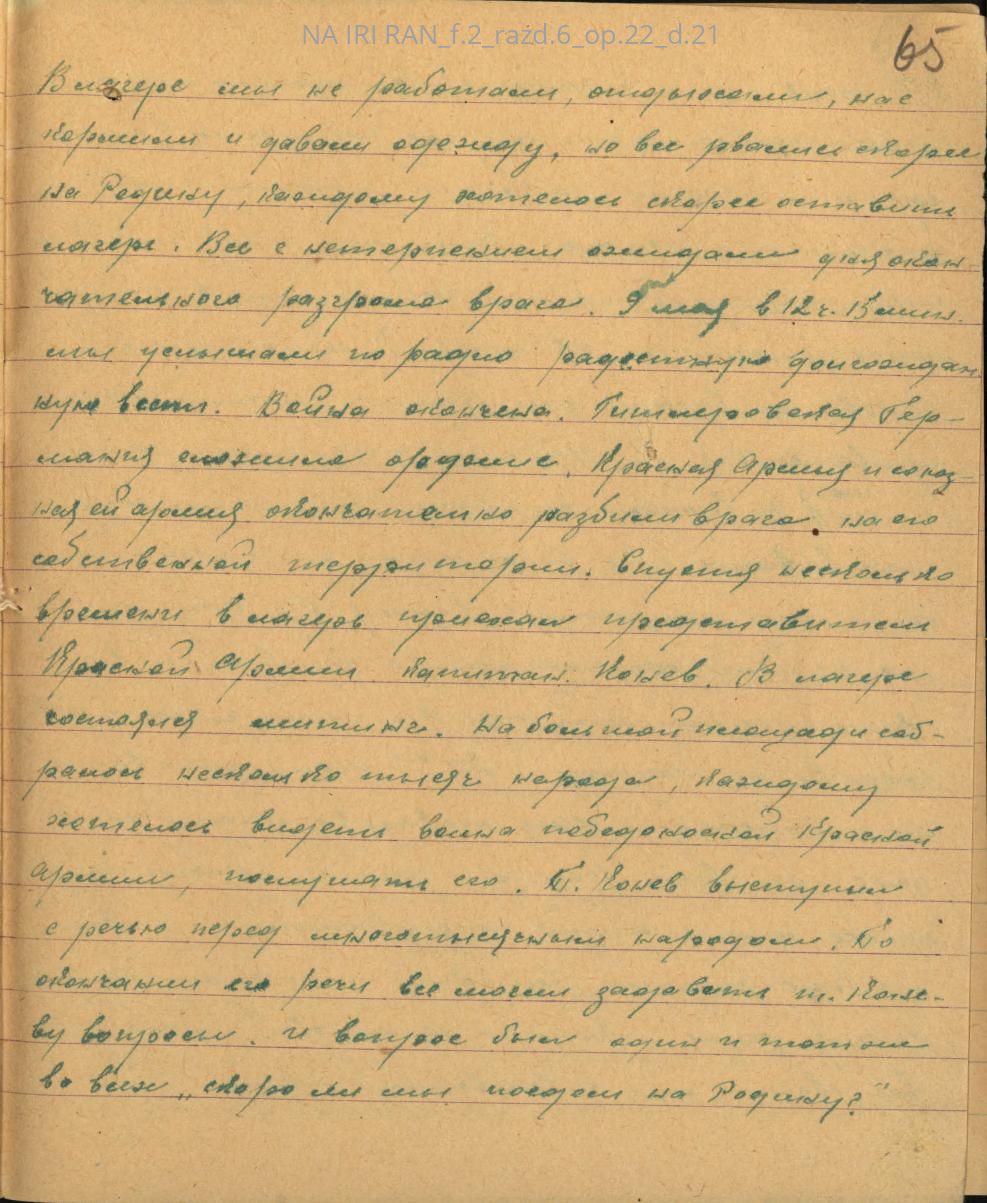 NA IRI RAN_f.2_razd.6_op.22_d.21
65
В лагере мы не работали, отдыхали, нас
кормили и давали одежду, но все рвались скорее
на Родину, каждому хотелось скорее оставить
лагерь. Все с нетерпением ожидали дня окон-
чательного разгрома врага. 9 мая в 12 ч. 15 мин.
мы услышали по радио радостную долгождан
ную весть. Война окончена. Гитлеровская Гер-
мания сложила оружие. Красная Армия и союз-
ная ей армия окончательно разбили врага на его
собственной территории. Спустя несколько
времени в лагерь приехал представитель
Красной Армии капитан Конев. В лагере
состоялся митинг. На большой площади соб-
ралось несколько тысяч народа, каждому
хотелось видеть воина победоносной Красной
Армии, послушать его. Т. Конев выступил
с речью перед многотысячным народом. По
окончании его речи все могли задавать т. Коне-
ву вопросы. И вопрос был один и тот же
во всех „скоро ли мы поедем на Родину?"